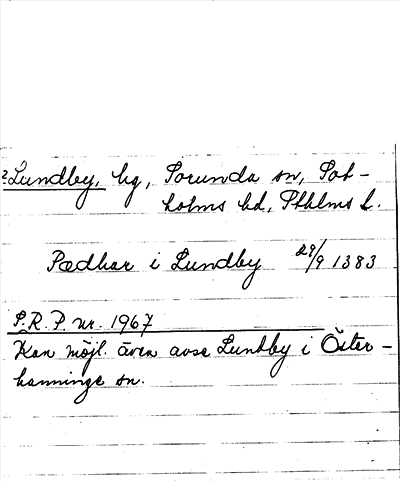 2 Lundby, by, Sorunda sn, Sot-
holms hd, Sthlms l.
Pædhar i Lundby 29/9 1383
S.R.P. nr. 1967
Kan möjl. även avse Lundby i Öster-
hanninge sn.